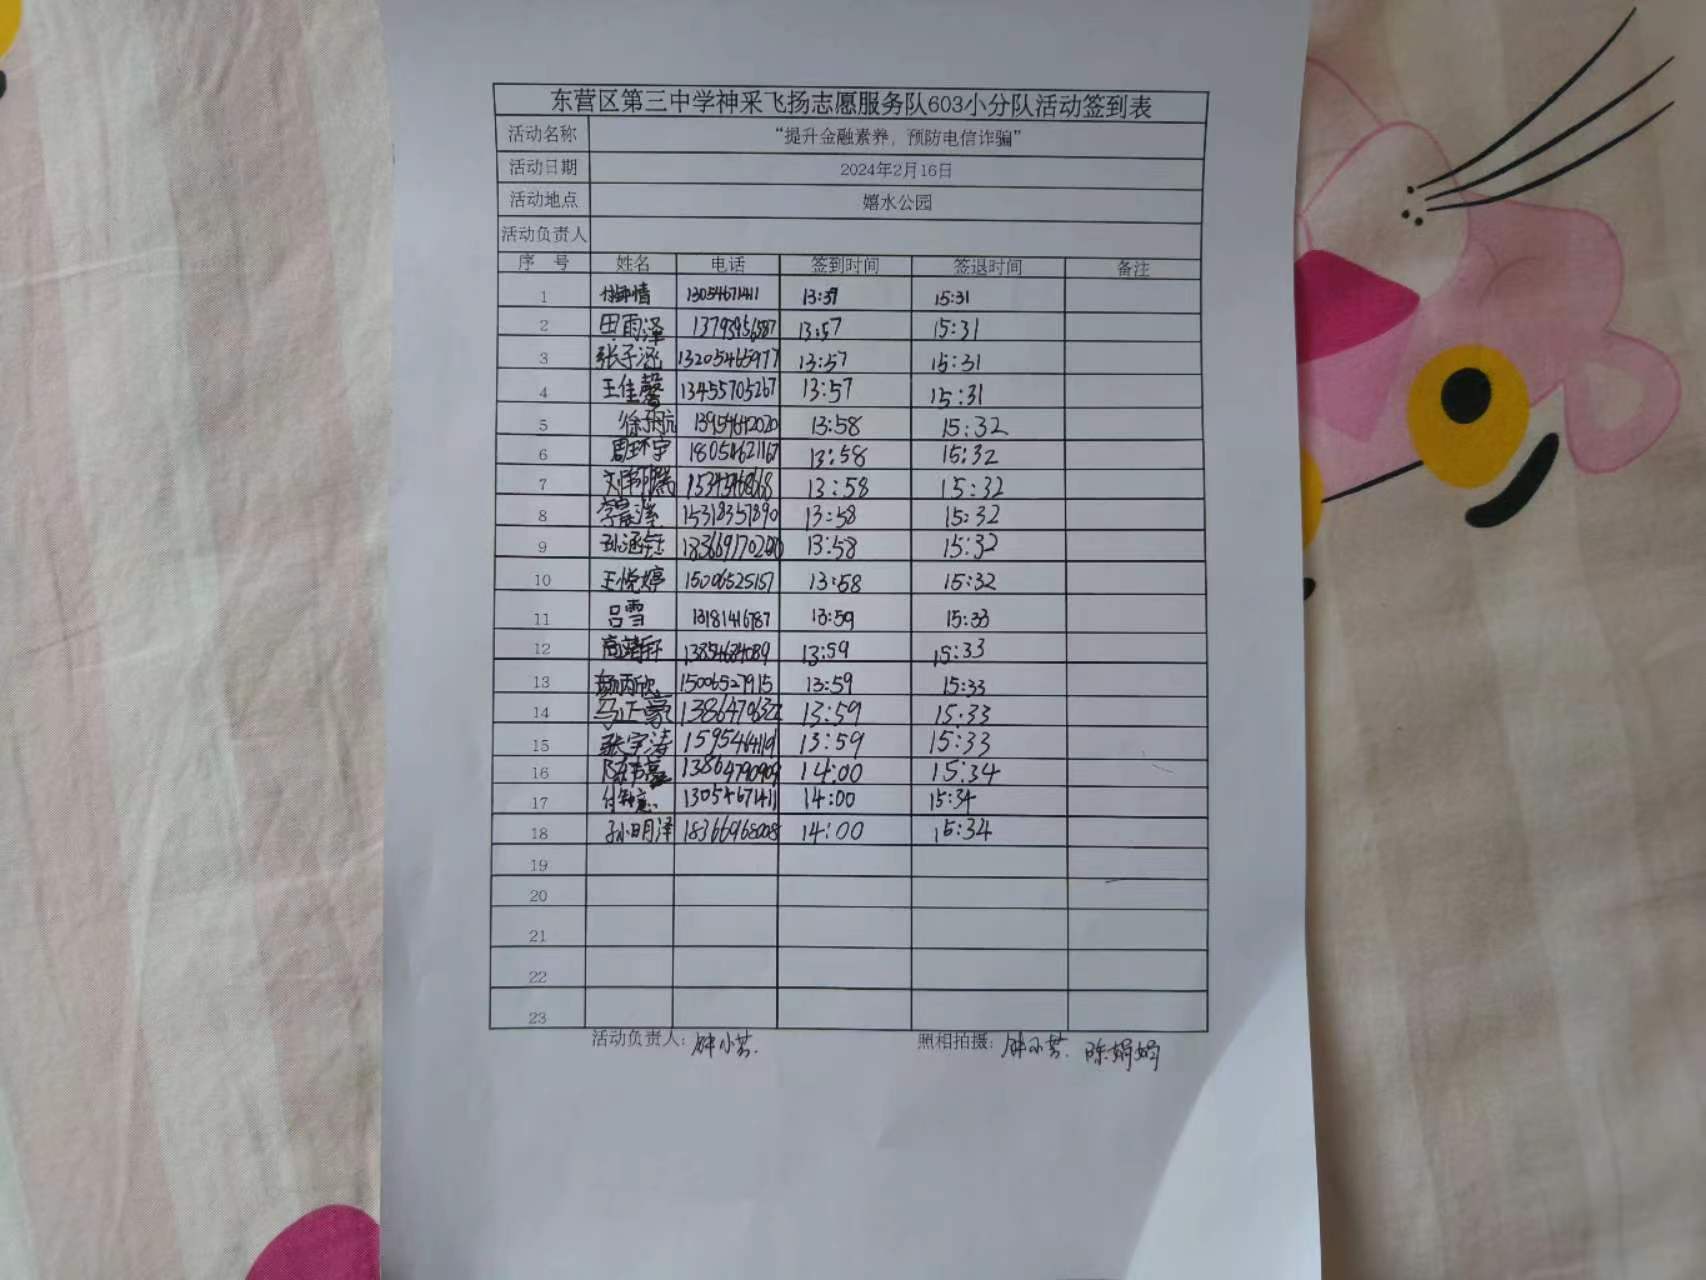 东营区第三中学神采飞扬志愿服务队603小分队活动签到表
活动名称 “提升金融素养，预防电信诈骗”
活动日期 2024年2月16日
活动地点 嬉水公园
活动负责人
序 号 姓名 电话 签到时间 签退时间 备注
1 13054671411 15:31
2 田雨泽 13:57 15:31
3 张子涵 13205465977 13:57 15:31
4 王佳馨 13455705267 13:57 15:31
5 13954642020 13:58 15:32
6 周环宇 18054621167 13:58 15:32
7 13:58 15:32
8 15318357890 13:58 15:32
9 孙涵钰 13:58 15:32
10 王悦婷 15006525157 13:58 15:32
11 吕雪 13181416787 13:59 15:33
12 高靖轩 13854684089 13:59 15:33
13 15006527915 13:59 15:33
14 马正豪 13:59 15:33
15 张宇涛 13:59 15:33
16 13864790909 14:00 15:34
17 13054671411 14:00 15:34
18 孙明泽 18366968008 14:00 15:34
19
20
21
22
23
活动负责人：钟小芸. 照相拍摄：钟小芸. 陈娟娟